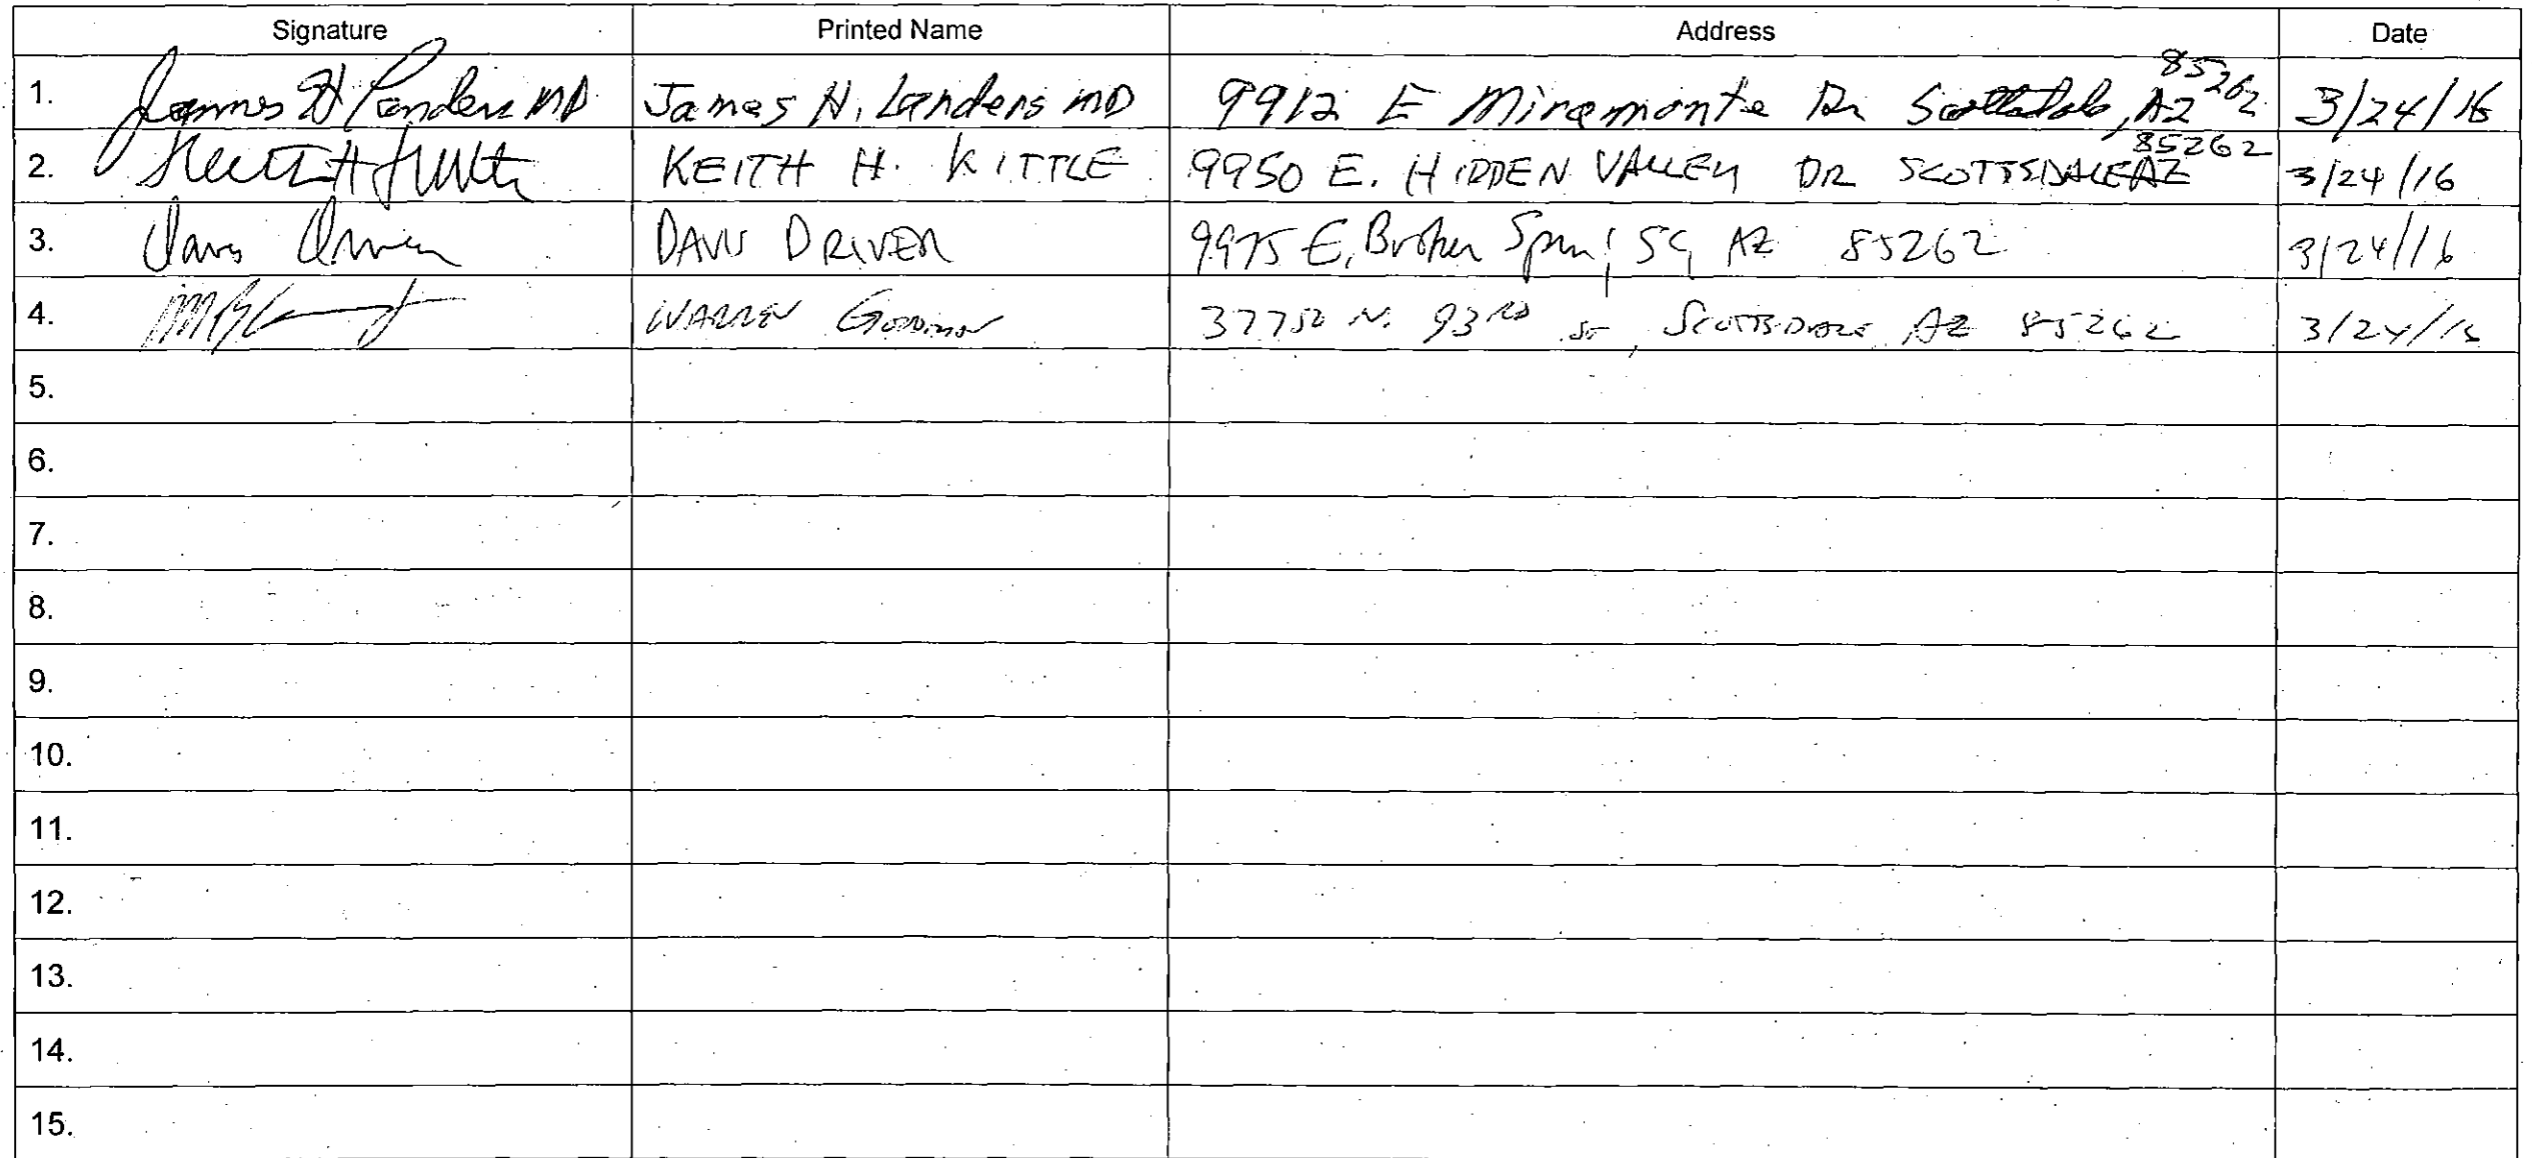 Signature Printed Name Address Date
1. James H Landers MD James H. Landers MD 9912 E Miramonte Dr Scottsdale, AZ 85262 3/24/16
2. KEITH H. KITTLE 9950 E. HIDDEN VALLEY DR SCOTTSDALE AZ 85262 3/24/16
3. Davis Driver DAVIS DRIVER 9975 E. Broken Spur, AZ 85262 3/24/16
4. WARREN 37750 N. 93RD ST, SCOTTSDALE AZ 85262 3/24/16
5.
6.
7.
8.
9.
10.
11.
12.
13.
14.
15.